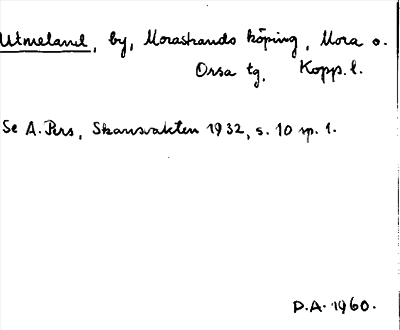 Utmeland, by, Morastrands köping, Mora o.
Orsa tg, Kopp. l.
Se A. Pers, Skansvakten 1932, s. 10 sp. 1.
D.A. 1960.